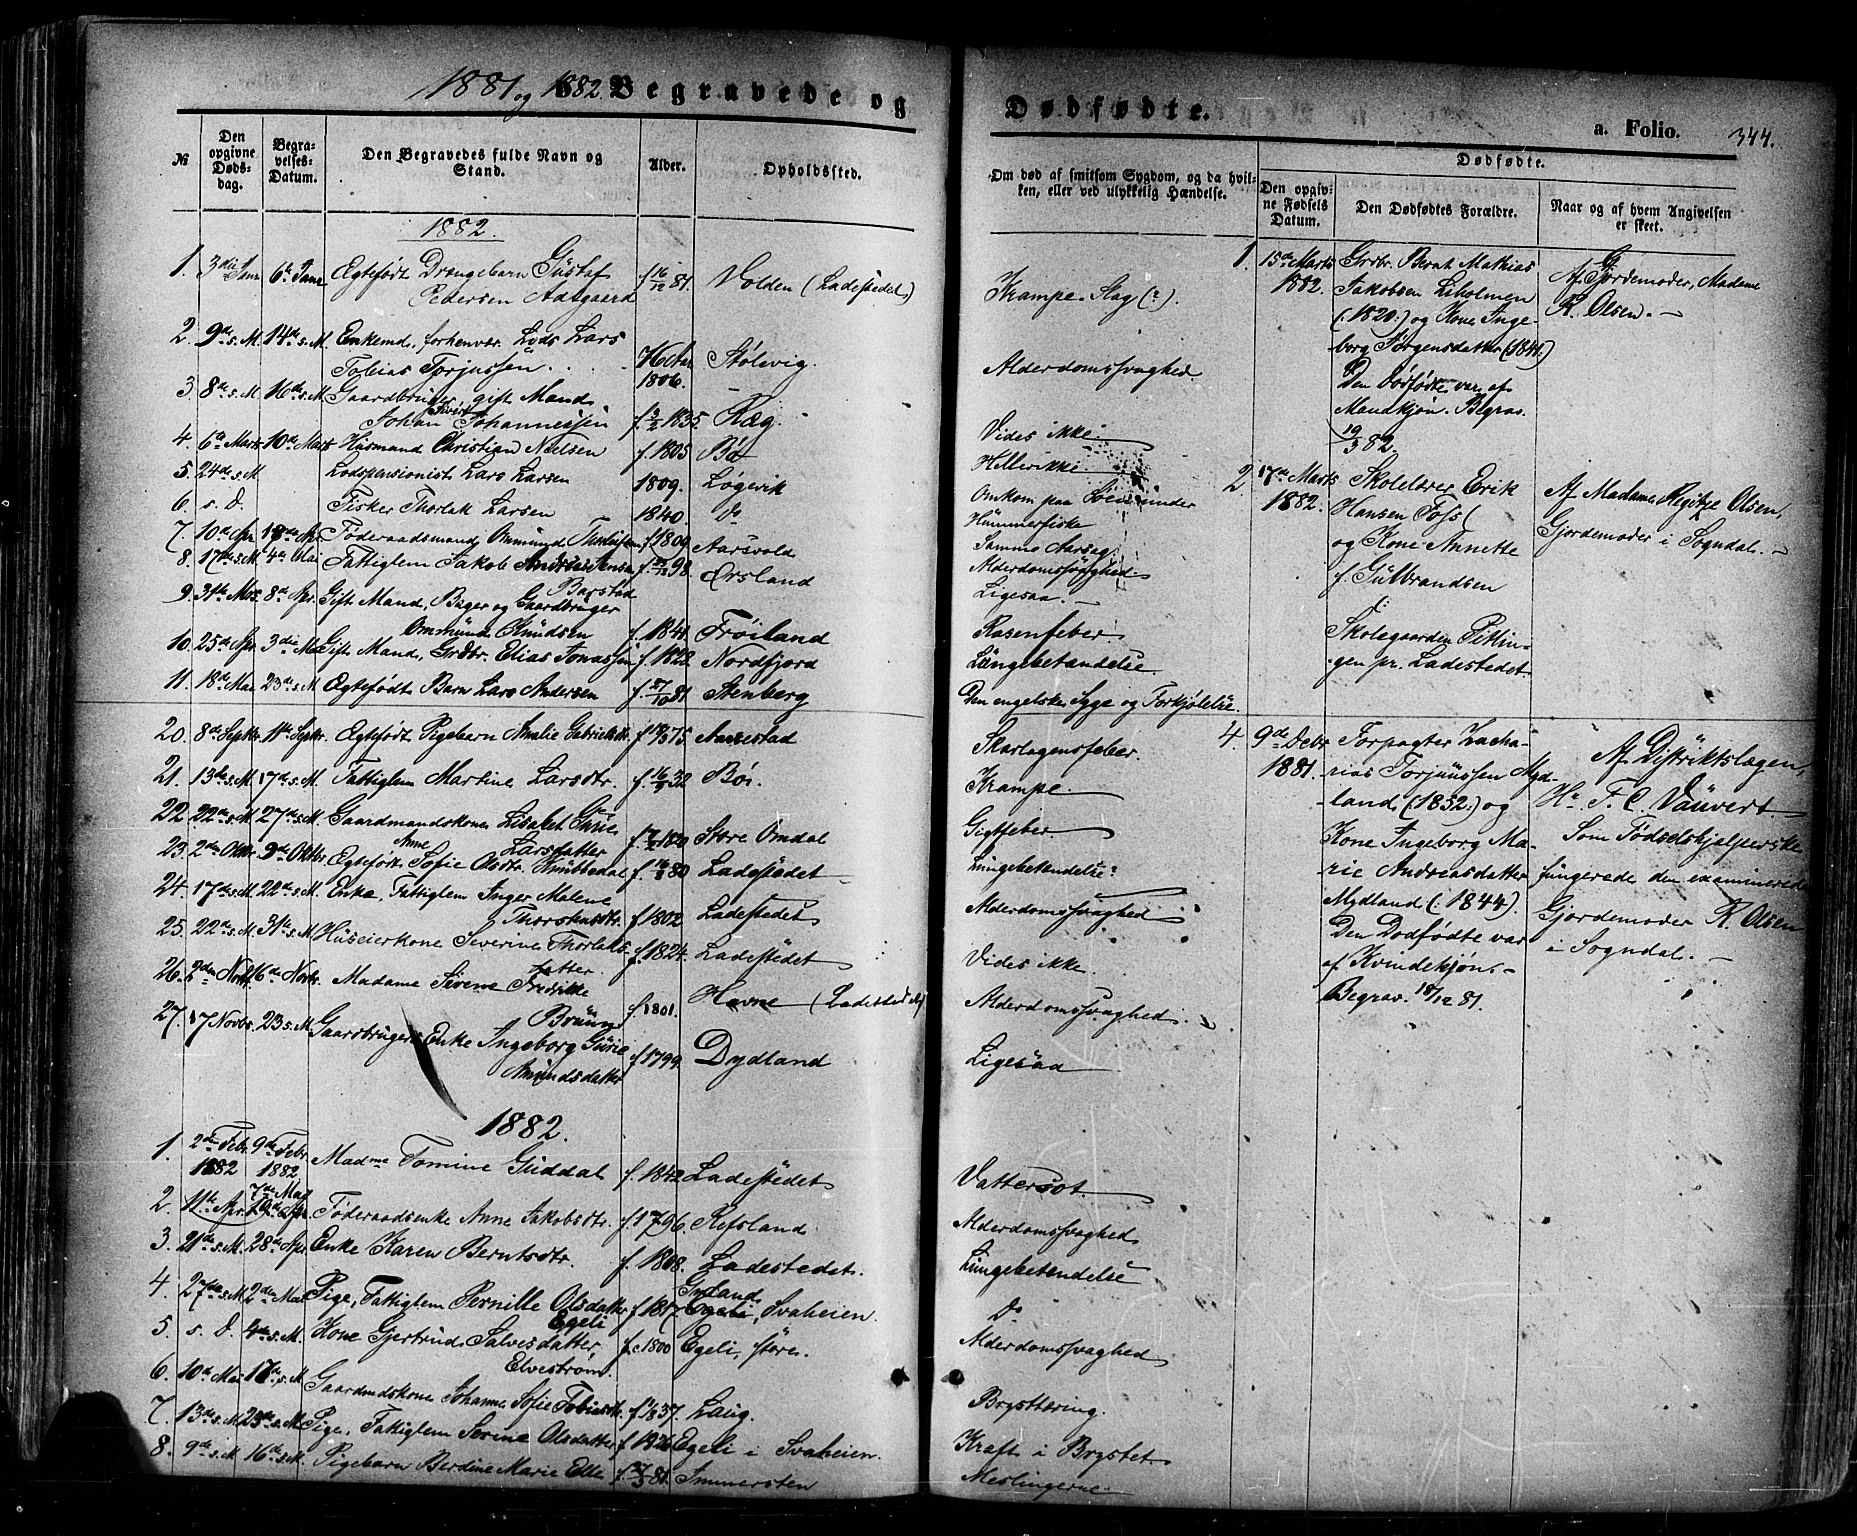 1881 og 1882. Begravede og
Dødfødte.
a. Folio. 344.
№
Den opgivne Døds-dag.
Begra-velses-Datum.
Den Begravedes fulde Navn og Stand.
Alder.
Opholdssted.
Om død af smitsom Sygdom, og da hvil-
ken, eller ved ulykkelig Hændelse.
Dødfødte.
Den opgiv-ne Fødsels Datum.
Den Dødfødtes Forældre.
Naar og af hvem Angivelsen er skeet.
1882.
1. 3die Janr 6te Janr Ægtefødt Drengebarn Gustaf f 16/12 81. Volden (Ladestedet)
Pedersen Aasgaard
Krampe-Slag (?).
2. 9de s. M. 14de s. M. Enkemd, forhenvær. Lods Lars
Tobias Torjussen 1806. Stølevig.
Alderdomssvaghed
3. 8de s. M. 16de s. M. Gaardbruger, gift Mand
Johan Sivert Johannessen 1835. Ræg.
Vides ikke
4. 6te Marts 10de Mart Husmand Christian Nielsen f. 1805 Bø
5. 24de s. M Lodspensionist Lars Larsen 1809. Løgevik
Omkom paa Søen under
6. s. D. Fisker Thorlak Larsen 1840. do
Hummerfiske
7. 10de Apr. Føderaadsmand Ommund f 1809 Aarsvold
Samme Aarsag
8. 17de s. M Fattiglem Jakob Ørsland
Barstad
Alderdomssvaghed
9. 31te Mrs. 8de Apr. Gift Mand, Bager og Gaardbruger
Ommund Knudsen f. 1841. Frøiland
Ligesaa. -
10. 25de Apr 3die Mai Gift Mand, Grdbr. Elias Jonassen f 1828. Nordfjord
Rosenfeber
Lungebetændelse
11. 18de Mai 23de s. M Ægtefødt Barn Lars Andersen f. 27/10 81 Stenberg
Den engelske Syge og Forkjølelse.
20. 8de Septbr. 11te Septbr. Ægtefødt Pigebarn Amalie Gabrielsdtr. Aarrestad
Skarlagensfeber.
21. 13de s. M. 17de s. M. Fattiglem Martine Larsdtr. Bø.
Krampe.
22. 22de s. M 27de s. M. Gaardmandskone Lisabet Gurie
Larsdatter 1820 Store Omdal
Gigtfeber
23. 2den Oktbr. 9de Oktbr. Ægtefødt Anne Sofie Olsdtr. Knubbedal 80 Ladestedet
Lungebetændelse
24. 17de s. M. 22de s. M. Enke, Fattiglem Inger Malene
f 1802 Ladestedet
Alderdomssvaghed
25. 22de s. M. 31te s. M. Huseierkone Severine Thorlaks-
datter. f. 1824. Ladestedet
Vides ikke.
26. 9de Novb 16de Novbr. Madame Sirene Fredrikke
Bruun f. 1801. Havne (Ladestedet)
Alderdomssvaghed.
27. 17 Novbr. 23 s. M. Gaardbrugers Enke Ingeborg Gurie
Amundsdatter f 1799. Dydland
Ligesaa
1882.
1. 2den Febr. 1882 9de Febr 1882 Madme Tomine Guddal f. 1842 Ladestedet
Vattersot.
2. 11te Apr. 7de Mai Føderaadsenke Anne Jakobsdtr. f. 1796. Refsland
Alderdomssvaghed
3. 21de s. M. 28de Apr. Enke Karen Berntsdtr. f. 1808. Ladestedet.
Lungebetændelse
4. 27de s. M 2den Mai Pige, Fattiglem Pernille Olsdatter
Egeli f 1817 Egeli, Svaheien.
do
5. s. D. 4de s. M. Kone Gjertrud Salvesdatter
Elvestrøm. f. 1800 Egeli, store.
Alderdomssvaghed
6. 10de Mai 17de s. M Gaardmdskone Johanne Sofie Tobiasdtr. 1837. Laug.
Brysttæring.
7. 13de s. M. 23de s. M. Pige, Fattiglem Serine Olsdatter f 1826 Egeli i Svaheien.
Kræft i Brystet
8. 9de s. M 16de s. M. Pigebarn Berdine Marie Elle f. 81. Immersten
Meslingerne
1. 15de Marts 1882. Grdbr. Bernt Mathias
Jakobsen Liholmen
(: 1820:) og Kone Inge-
borg Jørgensdatter (1841)
Den Dødfødte var af
Mandkjøn. Begrav.
19/3 82.
Af Gjordemoder, Madame
R. Olsen. -
2. 17de Marts 1882. Skolelærer Erik
Hansen Foss (
og Kone Annette
f. Gulbrandsen
Skolegaarden
pr. Ladestedet
Af Madame Regitze Olsen,
Gjordemoder i Sogndal. -
4. 9de Debr 1881. Forpagter Zacha-
rias Torjussen Myd-
land (: 1852:) og
Kone Ingeborg Ma-
rie Andreasdatter
Mydland (: 1844).
Den Dødfødte var
af Kvindekjøn. -
Begrav. 18/12 81.
Af Distriktslægen,
Hr. F. C. Vauvert. -
Som Fødselshjælperske
fungerede den examinerede
Gjordemoder R. Olsen
i Sogndal. -